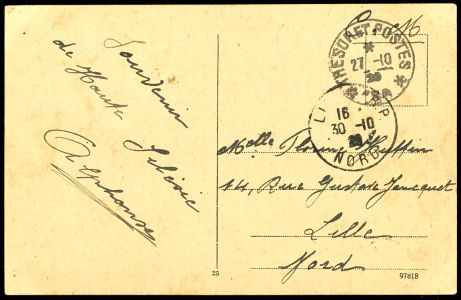 Souvenir
de Haute Silésie
Alphonse
F. M.
TRESOR ET POSTES
27 -10
20
LILLE
16
30 -10
20
NORD
Melle
44, Rue Gustave Jancquet
Lille
Nord
25
97818